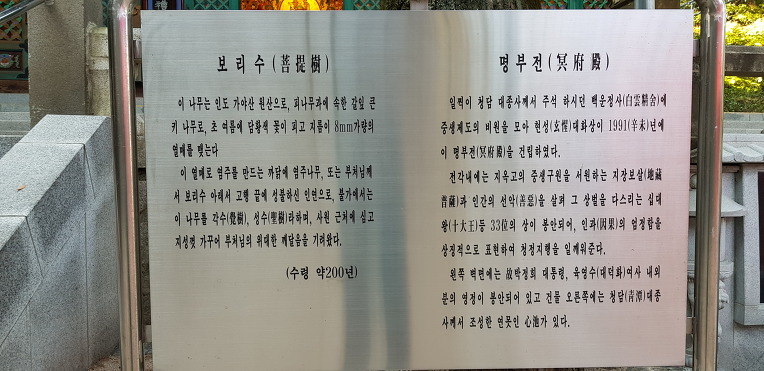 보리수(菩提樹)
이 나무는 인도 가야산 원산으로, 피나무과에 속한 갈잎 큰
키 나무로, 초 여름에 담황색 꽃이 피고 지름이 8mm가량의
열매를 맺는다
이 열매로 염주를 만드는 까닭에 염주나무, 또는 부처님께
서 보리수 아래서 고행 끝에 성불하신 인연으로, 불가에서는
이 나무를 각수(覺樹), 성수(聖樹)라하며, 사원 근처에 심고
지성껏 가꾸어 부처님의 위대한 깨달음을 기려왔다.
(수령 약200년)
명부전(冥府殿)
일찍이 청담 대종사께서 주석 하시던 백운정사(白雲精舍)에
중생제도의 비원을 모아 현성(玄惺)대화상이 1991(辛未)년에
이 명부전(冥府殿)을 건립하였다.
전각내에는 지옥고의 중생구원을 서원하는 지장보살(地藏
菩薩)과 인간의 선악(善惡)을 살펴 그 상벌을 다스리는 십대
왕(十大王)등 33位의 상이 봉안되어, 인과(因果)의 엄정함을
상징적으로 표현하여 청정지행을 일깨워준다.
왼쪽 벽면에는 故박정희 대통령, 육영수(대덕화)여사 내외
분의 영정이 봉안되어 있고 건물 오른쪽에는 청담(靑潭)대종
사께서 조성한 연못인 心池가 있다.